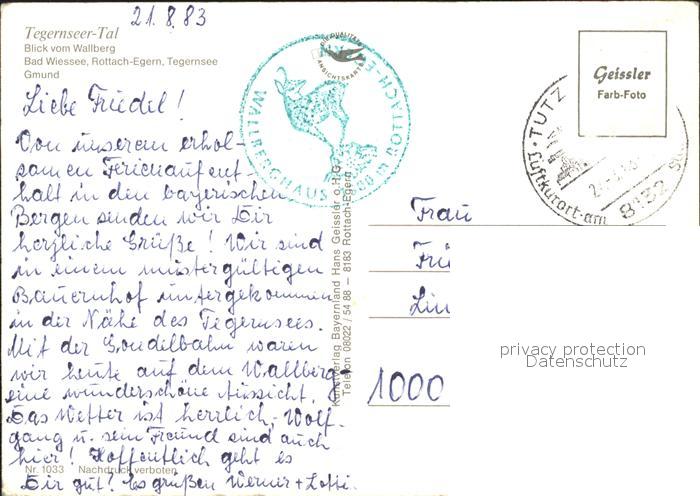 21.8.83
Tegernseer-Tal
Blick vom Wallberg
Bad Wiessee, Rottach-Egern, Tegernsee
Gmund
Liebe Friedel!
Von unserem erhol-
samen Ferienaufent-
halt in den bayerischen
Bergen senden wir Dir
herzliche Grüße! Wir sind
in einem mustergültigen
Bauernhof untergekommen
in der Nähe des Tegernsees.
Mit der Gondelbahn waren
wir heute auf dem Wallberg,
eine wunderschöne Aussicht.
Das Wetter ist herrlich. Wolf-
gang u. sein Freund sind auch
hier! Hoffentlich geht es
Dir gut? Es grüßen Werner + Lotti.
Nr. 1033 Nachdruck verboten
WALLBERGHAUS ROTTACH-E
QUALITÄTS
ANSICHTSKARTE
Kunstverlag Bayernland Hans Geissler o.H.G.
Telefon 08022 / 54 88 – 8183 Rottach-Egern
Geissler
Farb-Foto
TUTZ
Luftkurort am
8132
Frau
Fri
Lin
1000
privacy protection
Datenschutz